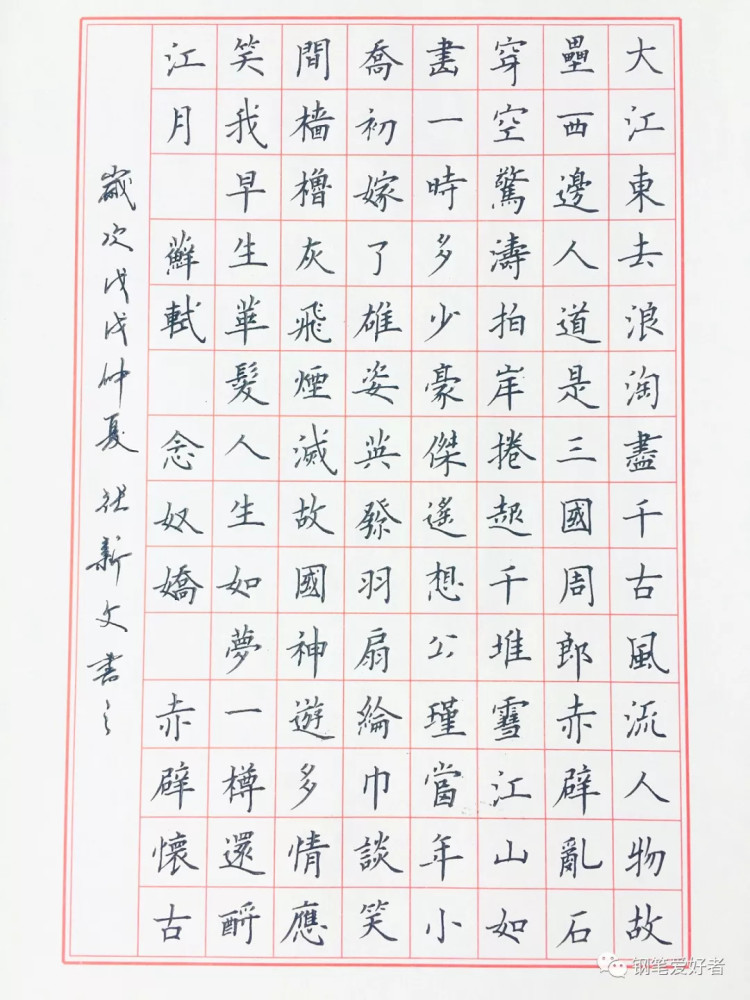 大江東去浪淘盡千古風流人物故
壘西邊人道是三國周郎赤壁亂石
穿空驚濤拍岸捲起千堆雪江山如
畫一時多少豪傑遙想公瑾當年小
喬初嫁了雄姿英發羽扇綸巾談笑
間檣櫓灰飛煙滅故國神遊多情應
笑我早生華髮人生如夢一樽還酹
江月 蘇軾 念奴嬌 赤壁懷古
歲次戊戌仲夏 張新文書之
钢笔爱好者